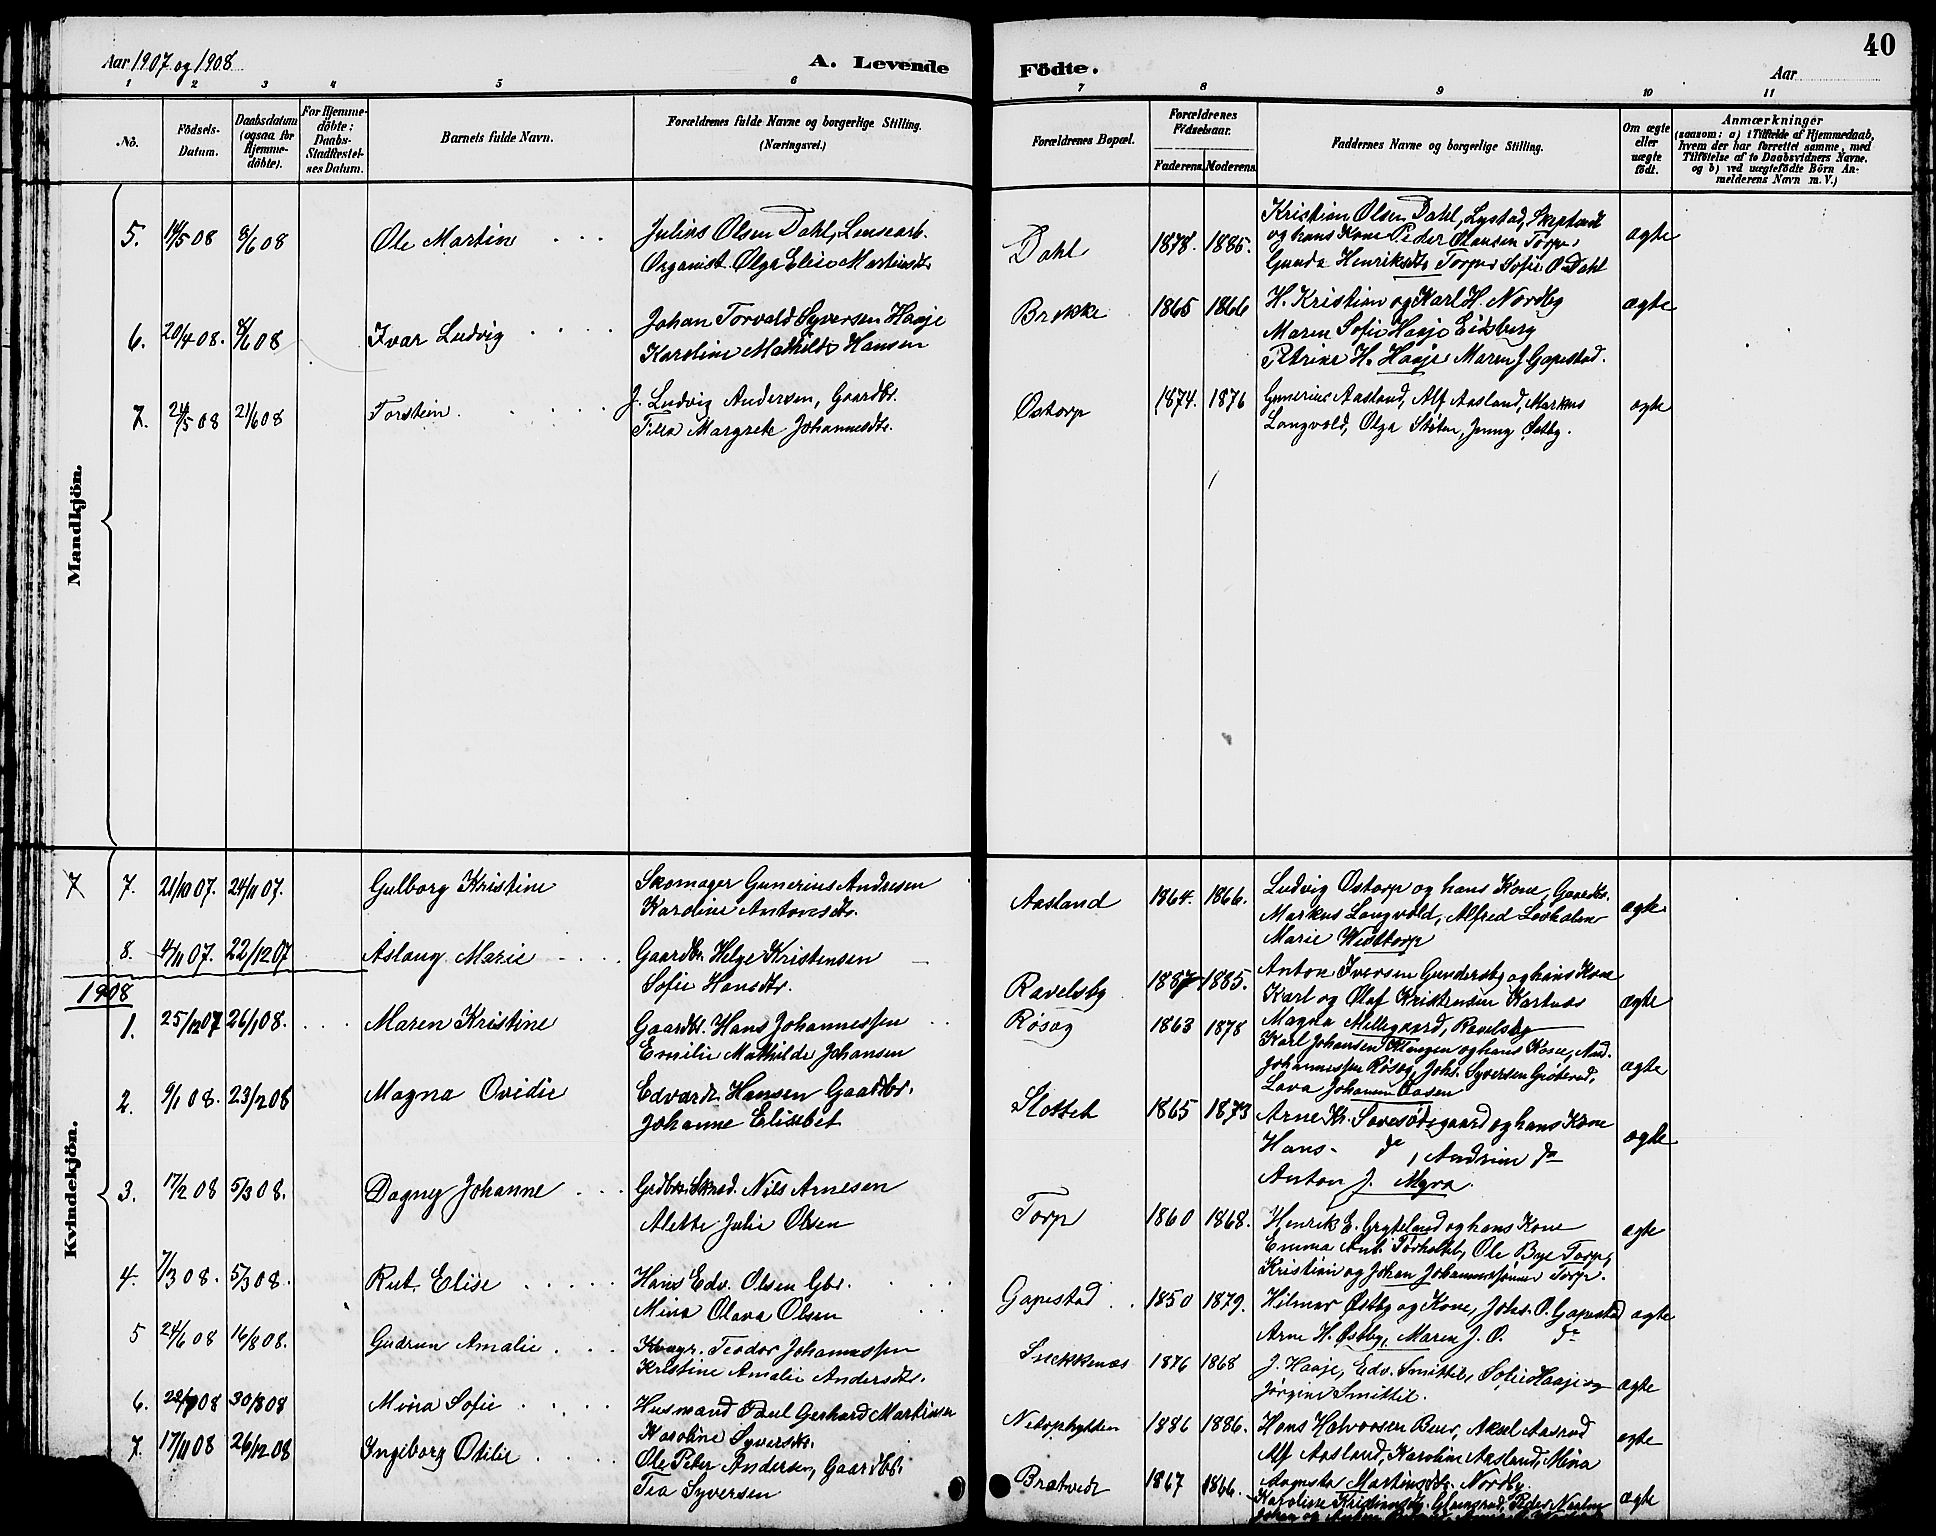 Aar 1907 og 1908 A. Levende Födte. Aar 40
1 2 3 4 5 6 7 8 9 10 11
No. Födsels-Datum. Daabsdatum (ogsaa for Hjemme-döbte). For Hjemme-döbte: Daabs-Stadfæstel-ses Datum. Barnets fulde Navn. Forældrenes fulde Navne og borgerlige Stilling. (Næringsvei.) Forældrenes Bopæl. Forældrenes Födselsaar. Faderens. Moderens. Faddernes Navne og borgerlige Stilling. Om ægte eller uægte födt. Anmærkninger (saasom: a) i Tilfælde af Hjemmedaab, hvem der har forrettet samme, med Tilføielse af to Daabsvidners Navne, og b) ved uægtefödte Börn An-melderens Navn m. V.)
Mandkjön.
5. 14/5 08 8/6 08 Ole Martin Julius Olsen Dahl, Linsearb. Dahl 1878. 1885. Kristian Olsen Dahl, Lystad,
Organist Olga Elise Martinsdtr. og hans Kone Peder Olausen Torp,
Gunda Henriksdtr Torp Sofie O. Dahl ægte
6. 20/4 08. 8/6 08 Ivar Ludvig Johan Torvald Syversen Haaje Brekke 1865 1866 H. Kristian og Karl H. Nordby ægte
Karoline Mathilde Hansen Maren Sofie Haaje Eidsberg
Petrine H. Haaje Maren J. Gapestad.
7. 24/5 08 21/6 08 Torstein. J. Ludvig Andersen, Gaardbr. Ostorp 1874. 1876 Gunerius Aasland, Alf Aasland, Markus ægte
Tilla Margrete Johannesdtr. Langvold, Olga Sloten, Jenny Østby.
Kvindekjön.
7 7. 21/10 07. 24/11 07. Gulborg Kristine Skomager Gunerius Andresen Aasland 1864. 1866. Ludvig Ostorp og hans Kone, Gaardbr. ægte
Karoline Antonsdtr. Markus Langvold, Alfred Lövholen
Marie Widttorp
8. 4/11 07. 22/12 07 Aslaug Marie Gaardbr. Helge Kristensen Ravelsby 1887 1885. Anton Iversen Gundersby og hans Kone ægte
Sofie Hansdtr. Karl og Olaf Kristensen Kartnæs
Magna Millegaard, Ravelsby
1908
1. 25/12 07 26/1 08. Maren Kristine Gaardbr. Hans Johannessen Røsæg 1863 1878 Karl Johansen Klengen og hans Kone, And. ægte
Emilie Mathilde Johansen Johannessen Røsæg, Johs. Syversen
Lava Johansen Aasen
2. 9/1 08. 23/2 08 Magna Ovidie Edvardt Hansen Gaardbr. Slottet 1865 1873 Arne Kr. Savesødegaard og hans Kone ægte
Johanne Elisebet Hans do, Andrine do
Anton J. Myra.
3. 17/2 08 5/3 08. Dagny Johanne Grdbr. Skræd. Nils Arnesen Torp 1860 1868. Henrik E. Gryteland og hans Kone ægte
Alette Julie Olsen Emma Ant. Torholtet, Ole Bye Torp,
Kristian og Johan Johannessønner Torp.
4. 7/3 08. 5/3 08. Rut Elise Hans Edv. Olsen Gbr. Gapestad 1850 1879. Hilmar Østby og Kone, Johs. O. Gapestad ægte
Mina Olava Olsen Arne H. Østby, Maren J. O. do
5 24/6 08 16/8 08. Gudrun Amalie Kvægr. Teodor Johannessen Snekknæs 1876 1868 J. Haaje, Edv. Smittil, Sofie Haaje og ægte
Kristine Amalie Andersdtr. Jørgine Smittil.
6. 22/7 08 30/8 08 Mina Sofie Husmand Paul Gerhard Martinsen 1886 1886. Hans Halvorsen Buer, Aksel Aasrud ægte
Karoline Syversdtr. Alf Aasland, Karoline Aasland, Mina
Augusta Martinsdtr. Nordby
7. 17/11 08 26/12 08 Ingeborg Otilie Ole Peter Andersen, Gaardbr. Bratvedt 1867 1866. Karoline Kristiansdtr. Glomsrud, Peder ægte
Tea Syversen